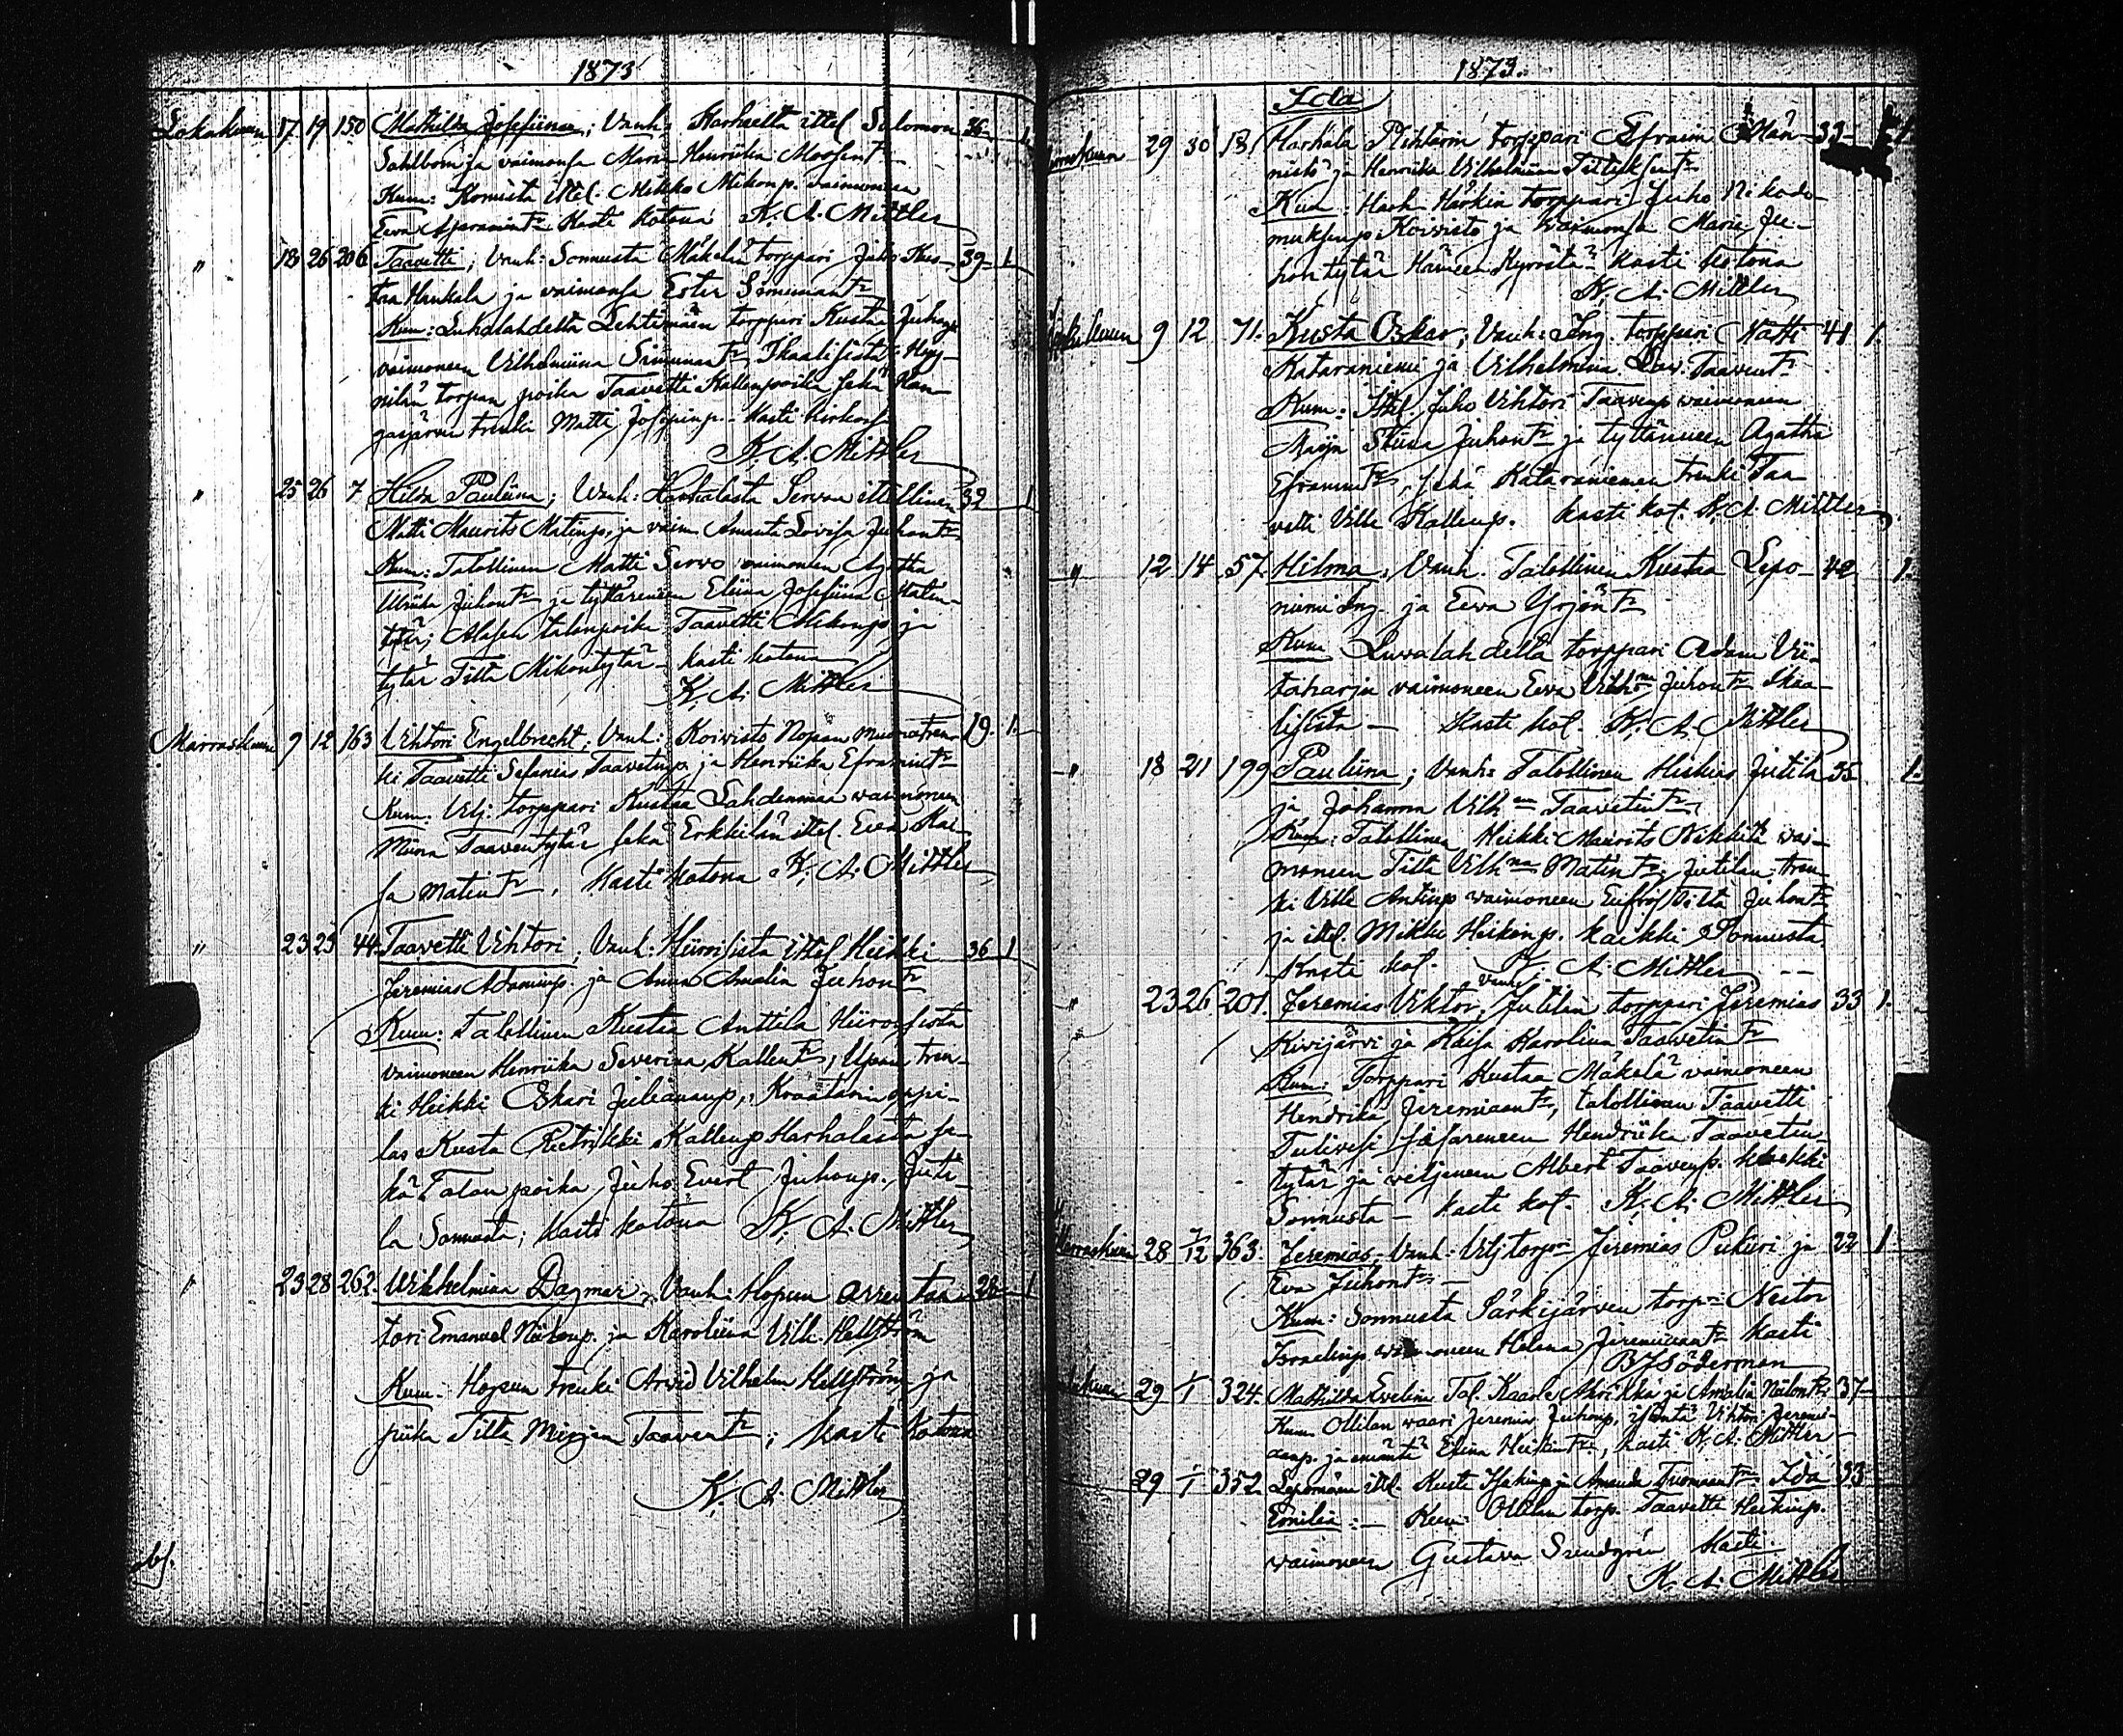 1873
Lokakuun 17 19 150 Mathilda Josefiina; Vanh: Harhaelta ittel Salomon 36
Sahlbom ja vaimonsa Maria Henriika
Kum: ittel. Mikko Mikonp. vaimoneen
Eeva Kasti kotona K. A. Mittler
" 18 26 206 Taavetti; Vanh: Sonnusta Mäkelän torppari Juho Kus- 39 1
taa Hankala ja vaimonsa Ester Simunant:r
Kum: Luhalahdelta Lehtimäen torppari Kusta Juhonp
vaimoneen Vilhelmiina Simunant:r, Ikaalisista Hey-
nilän torpan poika Taavetti Kallenpoika sekä Kan-
gasjärvi trenki Matti Josefinp. Kasti kirkosa
K. A. Mittler
" 25 26 7 Hilda Pauliina; Vanh: Harhalasta Servon ittellinen 32 1
Matti Maurits Matinp. ja vaim. Amanta Lovisa Juhont:r
Kum: Talollinen Matti Servo vaimoneen Agatha
Ulriika Juhont:r ja tyttäreneen Eliina Josefiina Matin-
tytär; talonpoika Taavetti Mikonp ja
tytär Tilta Mikontytär kasti kotona
K. A. Mittler
Marraskuun 9 12 163 Vihtori Engelbrecht; Vanh: Koivisto Nopsan tren- 19. 1.
ki Taavetti Sefanias Taavetinp. ja Henriika Eframint:r
Kum: Utj. torppari Kustaa Lahdenmaa vaimoneen
Miina Taaventytär sekä Erkkilän ittel. Eeva Kai-
sa Matint:r. Kasti kotona K. A. Mittler
" 23 25 44. Taavetti Vihtori; Vanh: Hiirosista ittel Heikki 36 1
Jeremias Adaminp. ja Anna Amalia Juhont:r
Kum: Talollinen Kustaa Anttila Hiirosista
vaimoneen Henriika Severiina Kallent:r, tren-
ki Heikki Oskari Juliananp., Kraatarin oppi-
las Kusta Pietrikki Kallenp Harhalasta se-
kä Talon poika Juho Evert Juhonp. Juti-
la Sonnusta; Kasti kotona K. A. Mittler
" 23 28 262. Vilhelmiina Dagmar, Vanh: Hopun arrentaa- 28 1
tori Emanuel ja Karoliina Vilh. Hellström
Kum: Hopun trenki Arvid Vilhelm Hellström ja
piika Tilta Mirjam Taavent:r; kasti kotona
K. A. Mittler
1873.
Ida
29 30 18 Harhala torppari Efraim Män- 33 1
nistö ja Henriika Vilhelmiina
Kum: Harh. Härkin torppari Juho Nikode-
muksenp Koivisto ja vaimonsa Maria Ju-
hontytär Hämeen Kyröstä Kasti kotona
K. A. Mittler
9 12 71. Kusta Oskar; Vanh: Ing. torppari Matti 41 1.
Kataraniemi ja Vilhelmina Lov. Taavent:r
Kum: Ittel. Juho Vihtori Taavenp vaimoneen
Maija Stiina Juhont:r ja tyttäneen Agatha
Eframint:r, sekä Kataraniemen trenki Taa
vetti Ville Kallenp. Kasti kot. K. A. Mittler
" 12 14 57. Hilma, Vanh. Talollinen Kustaa Lepo- 42 1.
niemi Ing. ja Eeva Yrjönt:r
Kum Luvalahdelta torppari Adam Vii-
taharju vaimoneen Eeva Juhont:r Ikaa-
lisista — Kasti kot. K. A. Mittler
" 18 21 199 Pauliina; Vanh: Talollinen Hiskias Jutila 35 1.
ja Johanna Vilh:na Taavetint:r
Kum: Talollinen Heikki Maurits Nikkilä vai-
moneen Tilta Vilh:na Matint:r, Jutilan tren-
ki Ville Antinp vaimoneen Juhont:r
ja ittel. Mikko Heikinp. kaikki Sonnusta
Kasti kot. K. A. Mittler
" 23 26 201. Jeremias Viktor, Vanh: Jutilan torppari Jeremias 33 1.
Kivijärvi ja Kaisa Karolina Taavetint:r
Kum: Torppari Kustaa Mäkelä vaimoneen
Hendrika Jeremiaant:r, talollinen Taavetti
Tulivesi sisareneen Hendriika Taavetin-
tytär ja veljeneen Albert Taavenp. kaikki
Sonnusta — kasti kot. K. A. Mittler
Marraskuun 28 7/12 363. Jeremias, Vanh: Utj torp:ri Jeremias Pukuri ja 22 1
Eva Juhont:r —
Kum: Sonnusta Särkijärven torp:ri Nestor
Israelinp vaimoneen Helena Jeremiaant:r kasti
B J Söderman
29 1/1 324. Mathilda Evelina Tal. Kaarle ja Amalia 37
Kum Ollilan vaari Jeremias Juhonp, isäntä Vihtori Jeremi-
aanp. ja emäntä Elina Heikint:r, kasti K. A. Mittler
29 1/1 352 Lepomäen ittel. Kusti ja Amanda Tuomaant:r Ida 33
Emilia: — Kum: Ollilan torp. Taavetti Heikinp.
vaimoneen Gustava Sundgrén Kasti.
K. A. Mittler